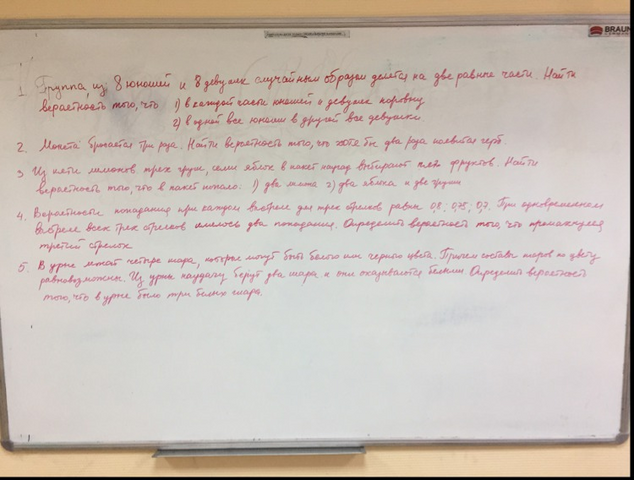 BRAUN
1. Группа из 8 юношей и 8 девушек случайным образом делится на две равные части. Найти
вероятность того, что 1) в каждой части юношей и девушек поровну
2) в одной все юноши в другой все девушки.
2. Монета бросается три раза. Найти вероятность того, что хотя бы два раза появится герб.
3 Из пяти лимонов трех груш, семи яблок в пакет наугад выбирают фруктов. Найти
вероятность того, что в пакет попало: 1) два 2) два яблока и две груши
4. Вероятности попадания при каждом выстреле для трех стрелков равны 0,8, 0,75, 0,7. При одновременном
выстреле всех трех стрелков имелось два попадания. Определить вероятность того, что промахнулся
третий стрелок
5. В урне лежат четыре шара, которые могут быть белого или черного цвета. Причем составы шаров по цвету
равновозможны. Из урны наудачу берут два шара и они оказываются белыми Определить вероятность
того, что в урне было три белых шара.